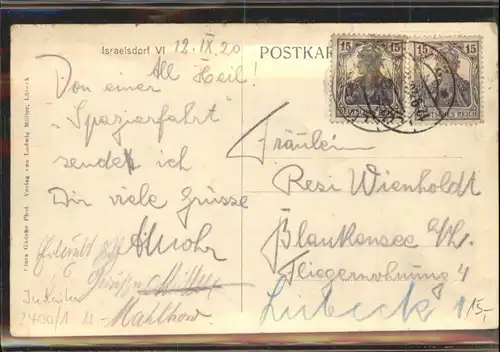 Israelsdorf VI 12.IX.20
POSTKAR
15 15
DEUTSCHES REICH
All Heil!
Von einer
"Spazierfahrt"
sendet ich
Dir viele Grüsse
Fräulein
Resi Wienholdt
Blankensee
Fliegerwohnung 4
Lübeck 1
Mahlhow
2400/1
15,-
Clara Gaedke Phot. Verlag von Ludwig Möller, Lübeck